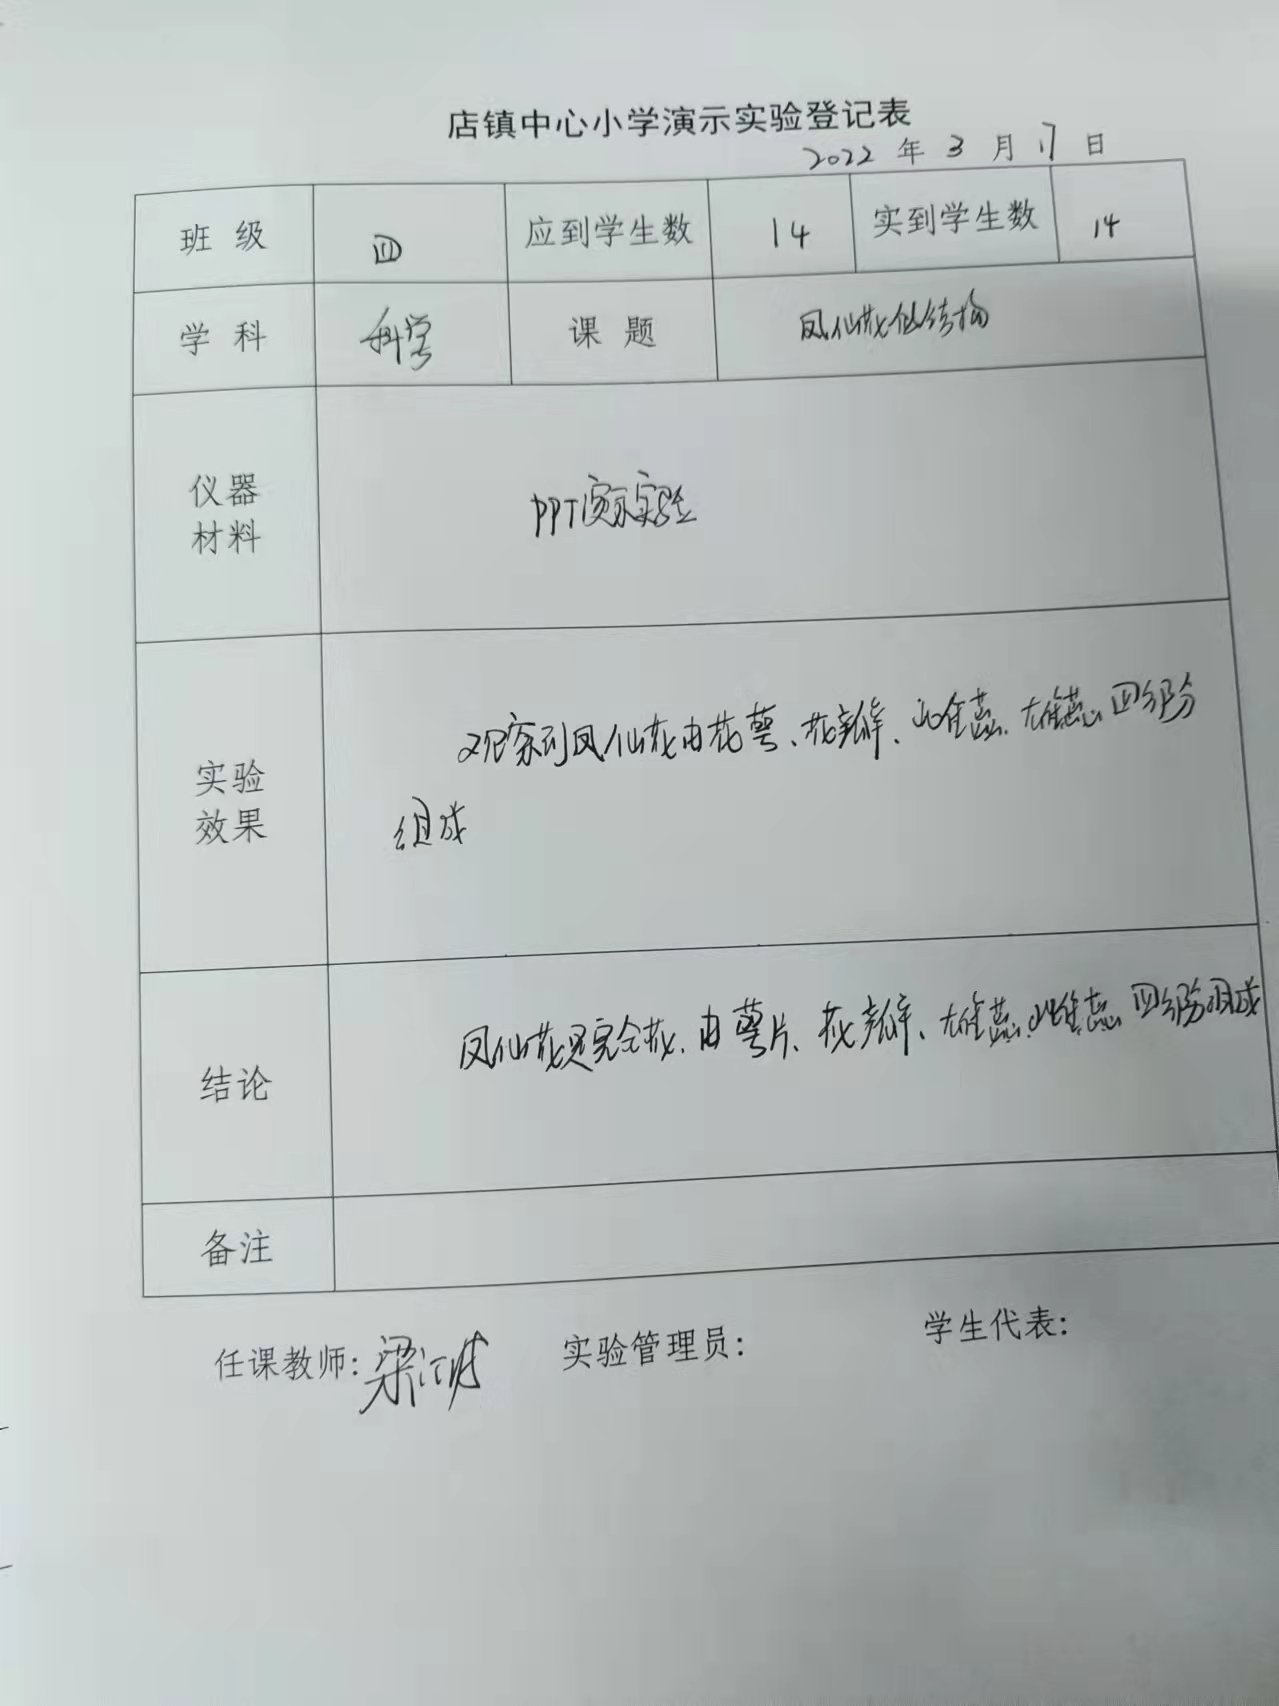 店镇中心小学演示实验登记表
2022 年 3 月 17 日
班 级 四 应到学生数 14 实到学生数 14
学 科 科学 课 题 凤仙花的结构
仪器
材料
PPT演示实验
实验
效果
观察到凤仙花由花萼、花瓣、雌蕊、雄蕊四部分
组成
结论
凤仙花是完全花、由萼片、花瓣、雄蕊、雌蕊四部分组成
备注
任课教师: 梁 实验管理员: 学生代表: